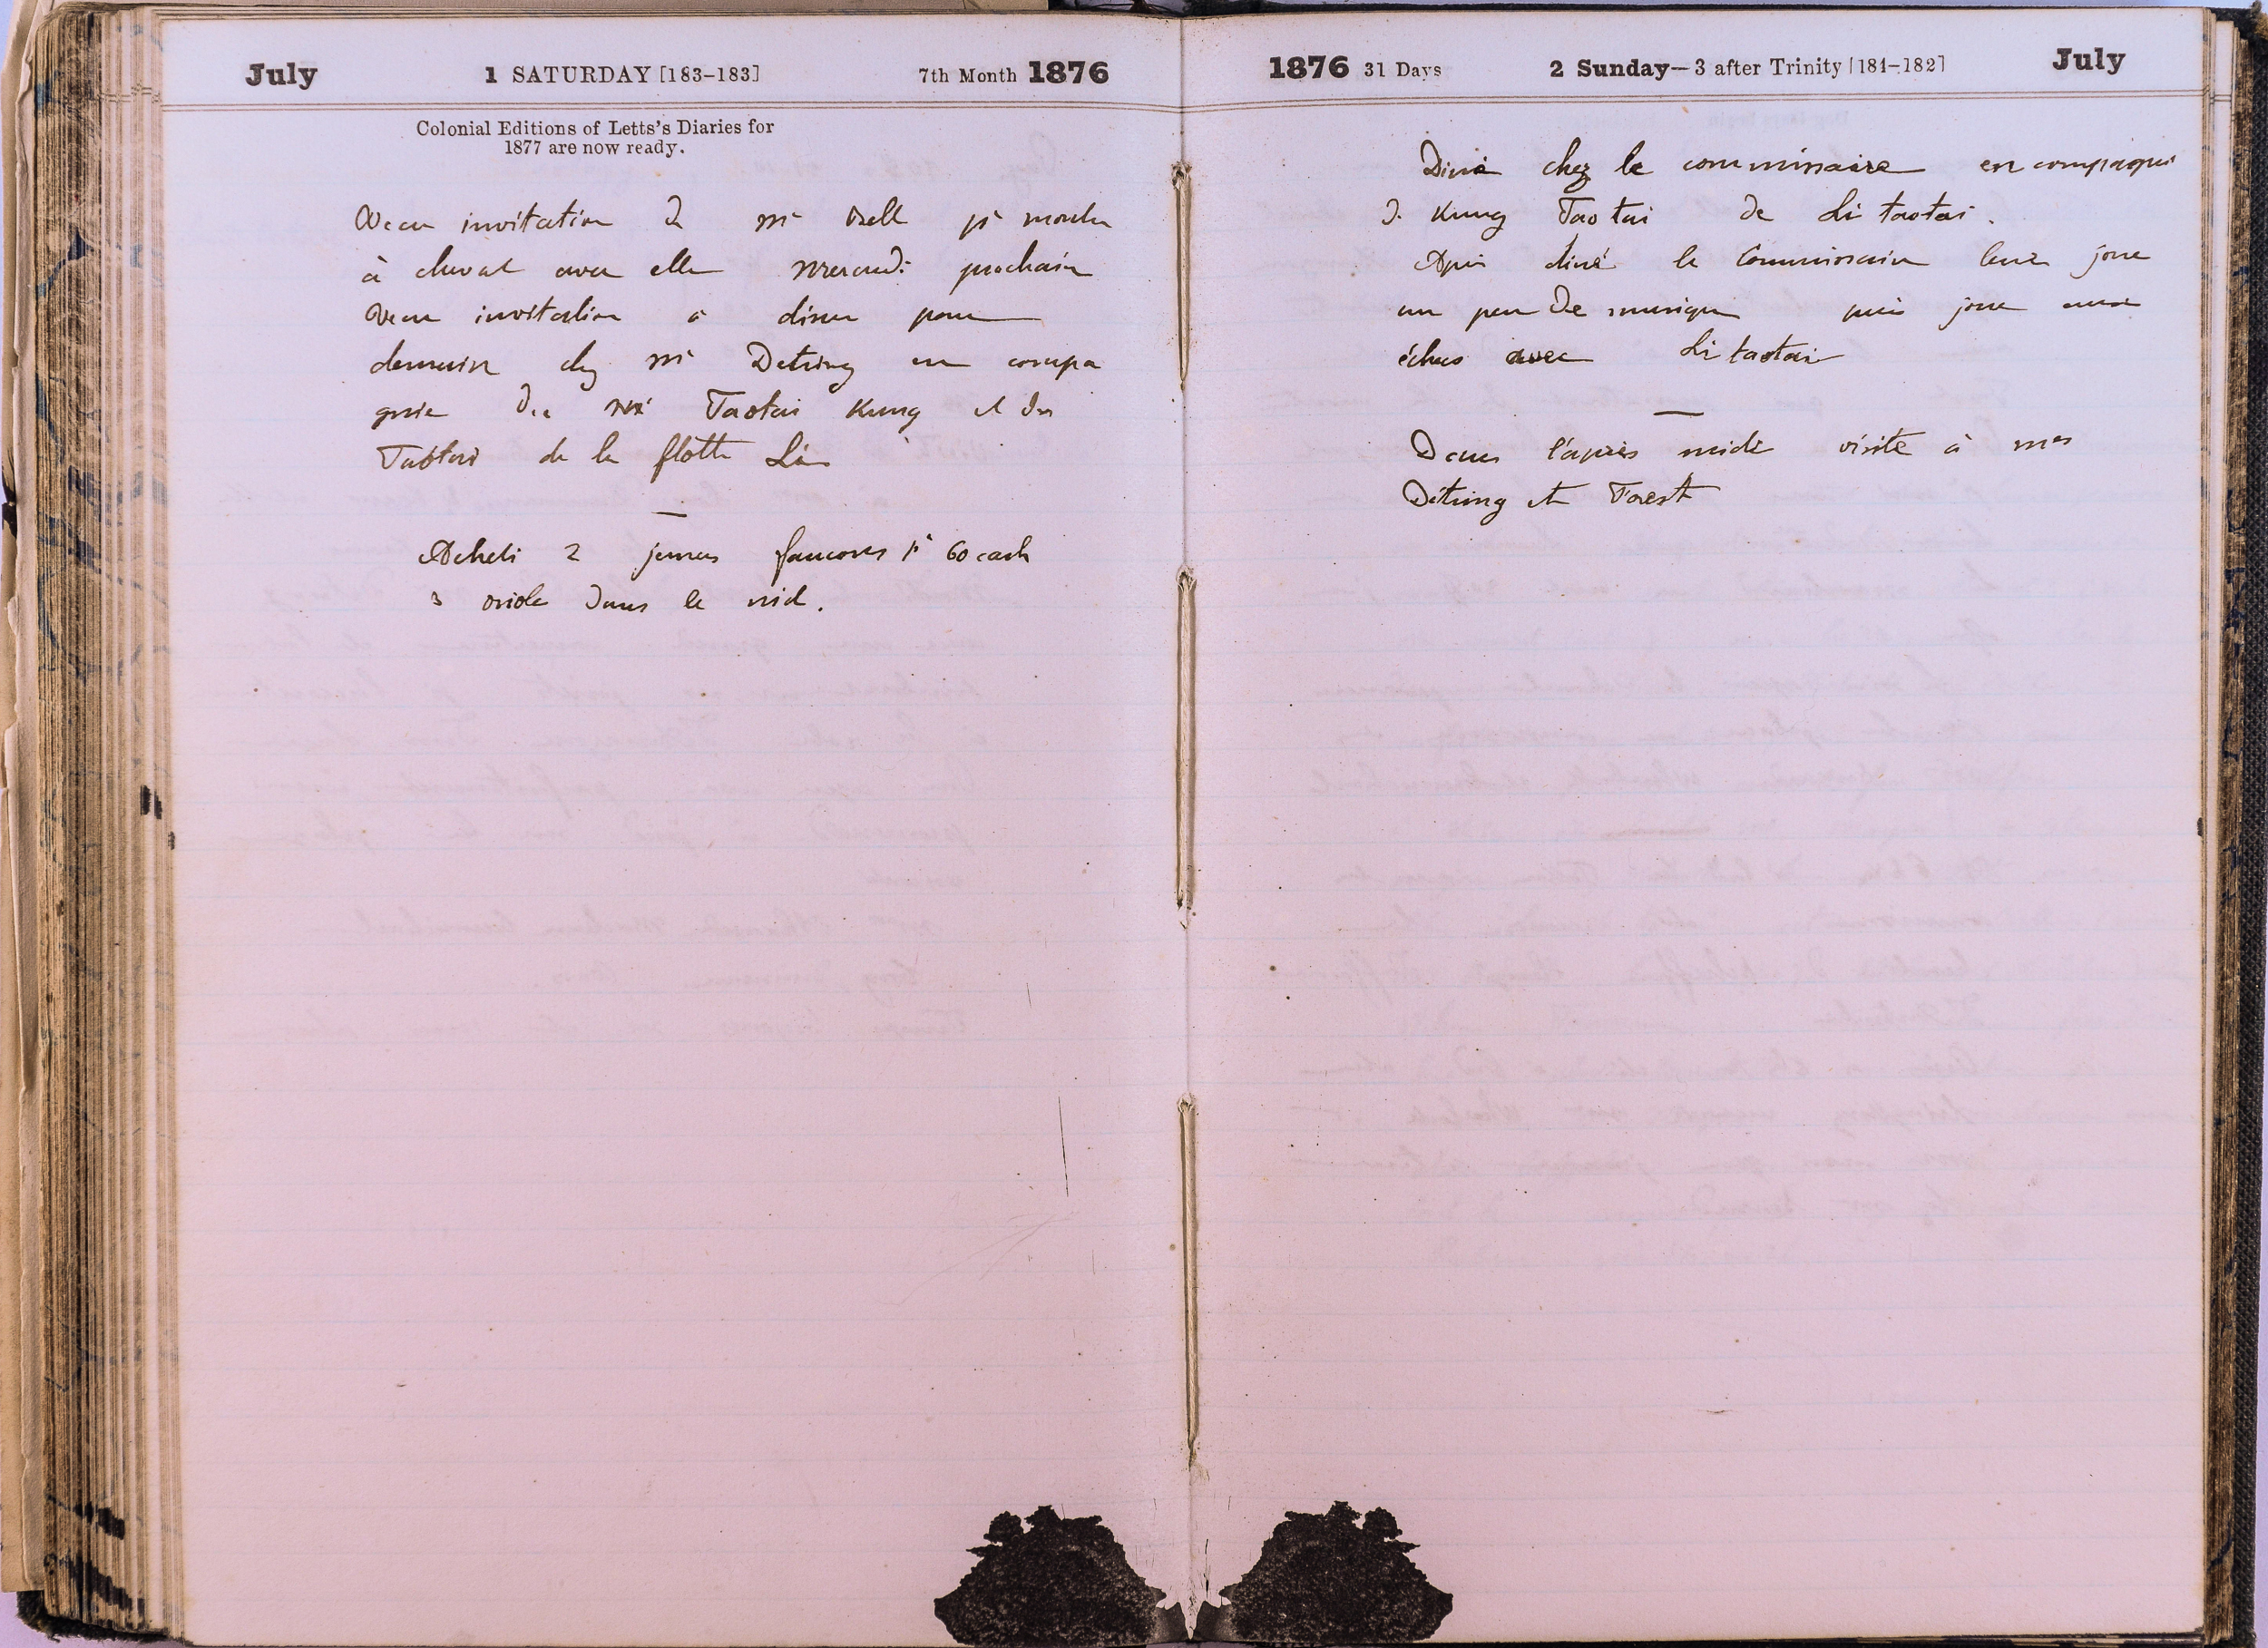 July 1 SATURDAY [183-183] 7th Month 1876
Colonial Editions of Letts's Diaries for
1877 are now ready.
Recu invitation de Me pr monter
à cheval avec elle mercredi prochain
Recu invitation a diner pour
demain chez Mr Detring en compa
gnie du Taotai Kung et du
Taotai de la flotte Li
—
Acheté 2 jeunes faucons pr 60 cash
3 oriole dans le nid.
1876 31 Days 2 Sunday—3 after Trinity [184-182] July
Diné chez le commissaire en compagnie
de Kung Taotai de Li taotai.
Après diné le Commissaire leur joue
un peu de musique puis joue aux
échecs avec Li taotai
—
Dans l'après midi visite à mes
Détring et Forest